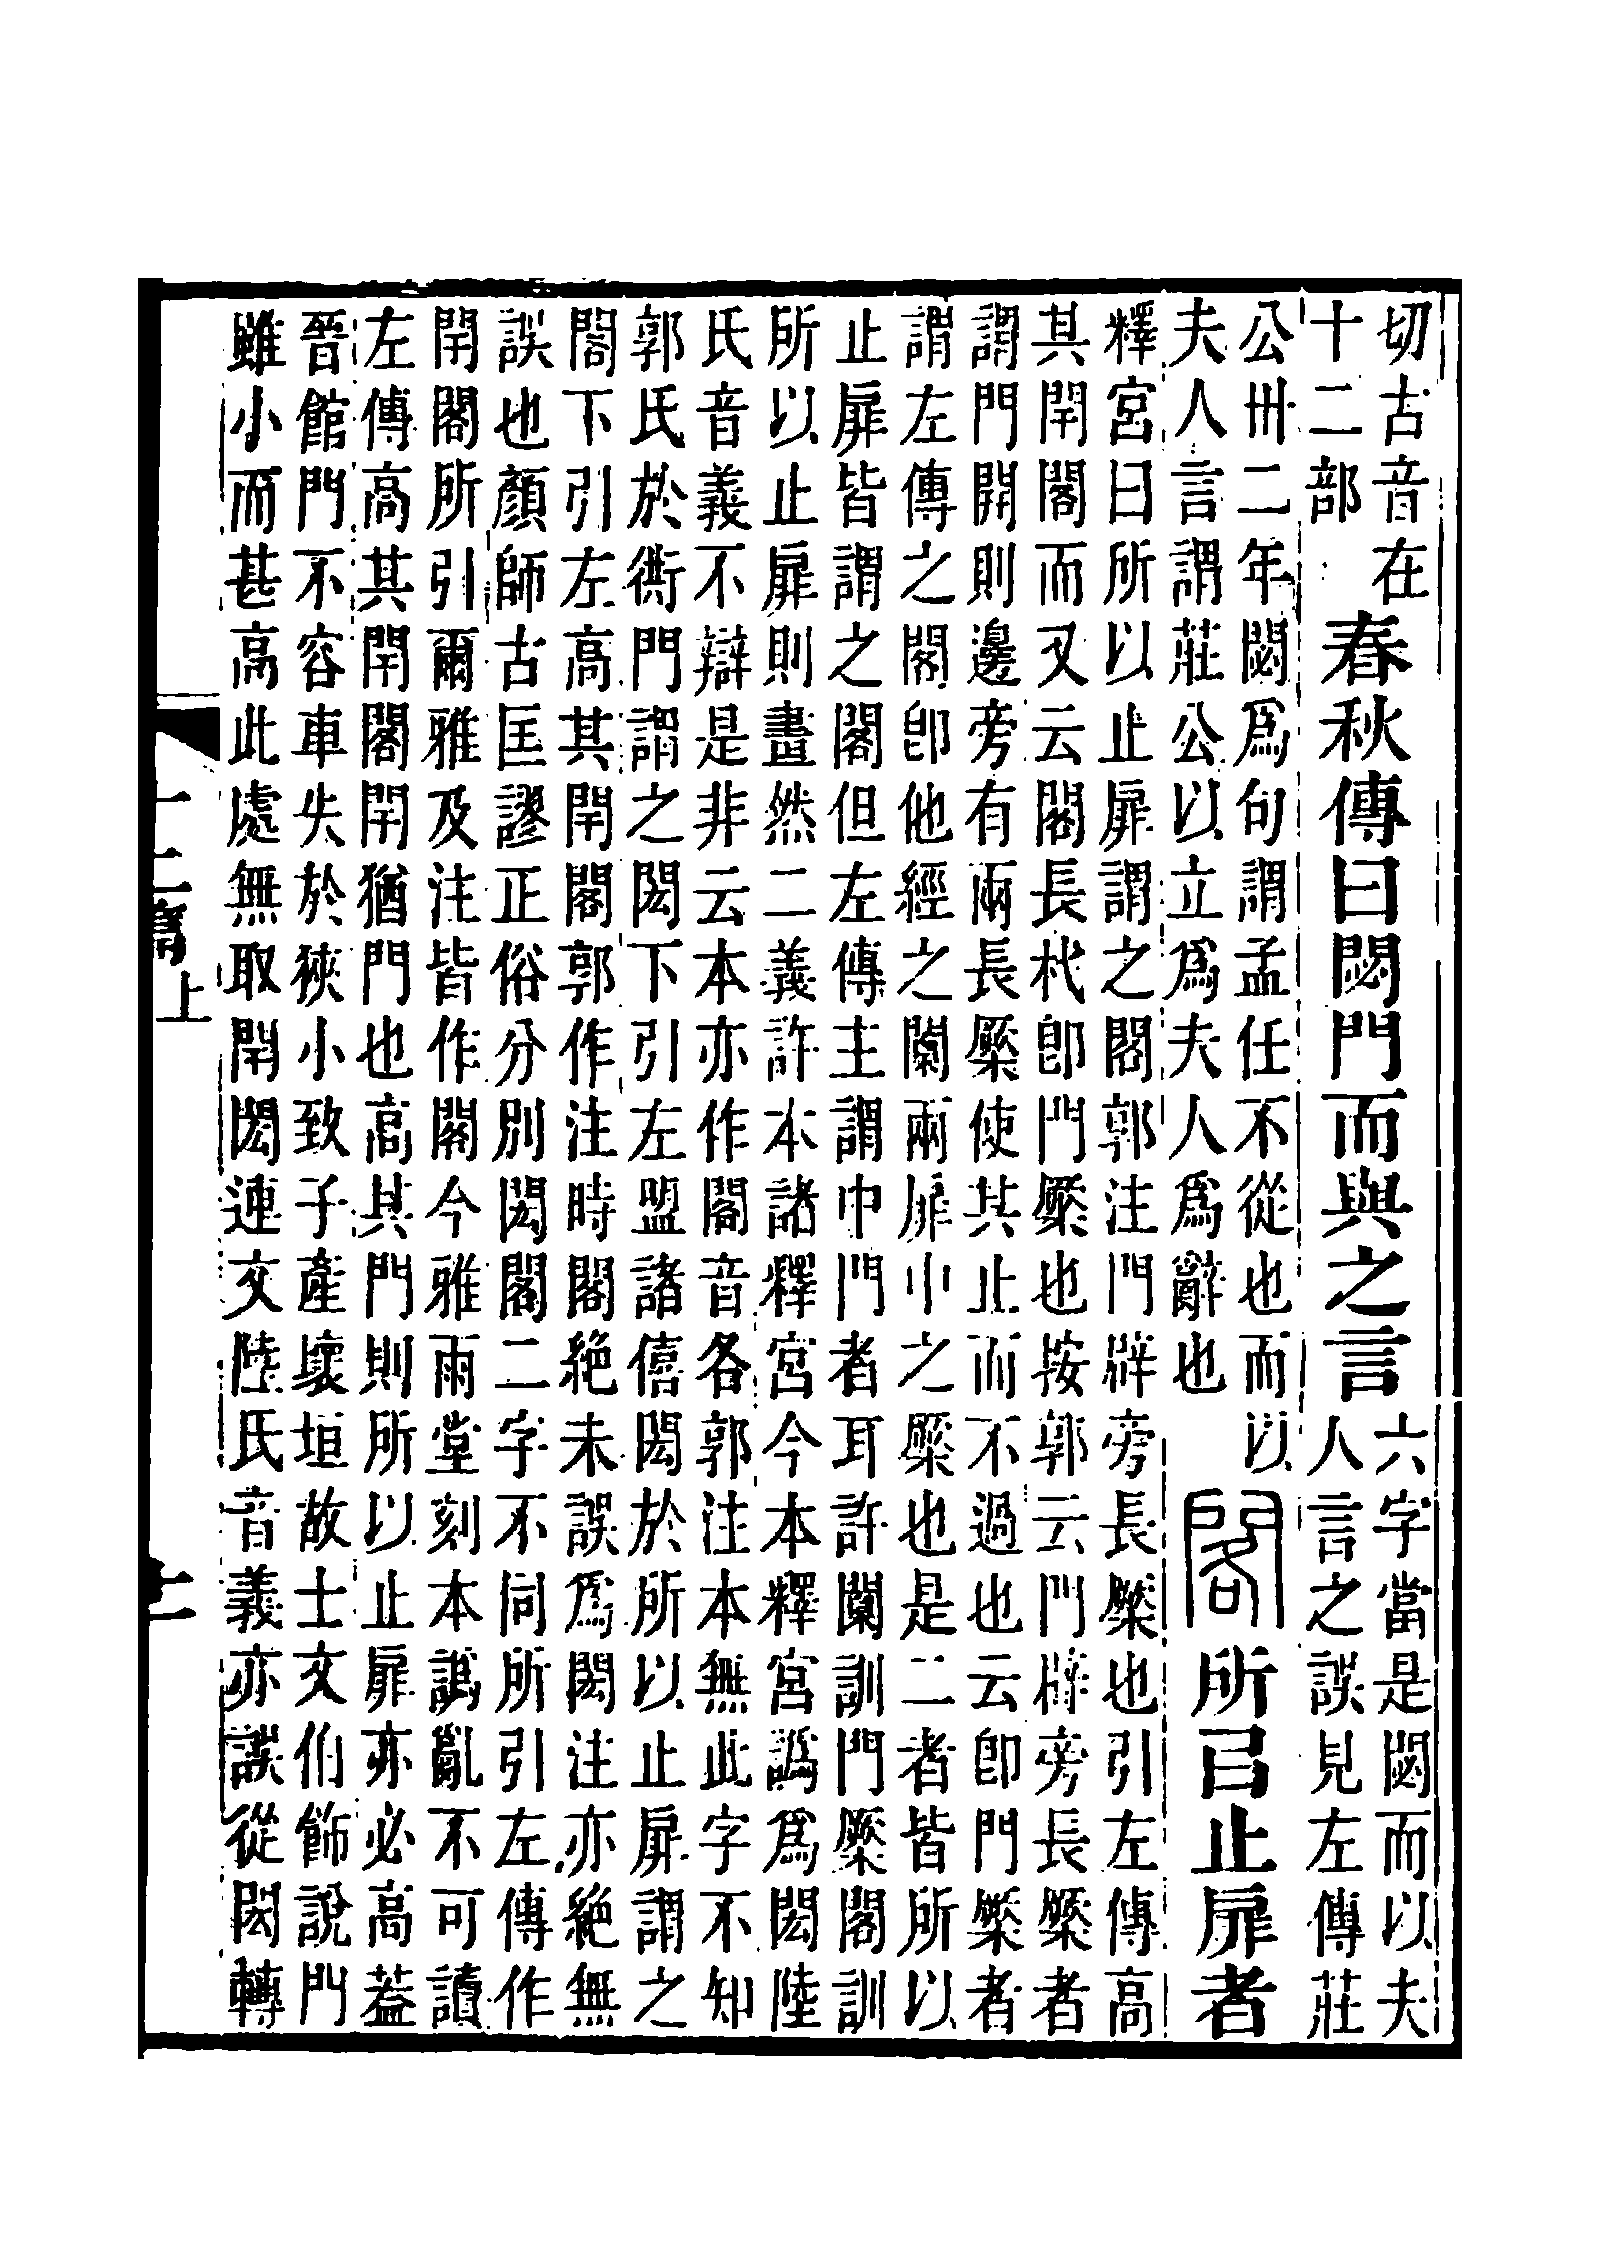 切古音在
十二部
春秋傳曰閟門而與之言
六字當是閟而以夫
人言之誤見左傳莊
公卅二年閟爲句謂孟任不從也而以
夫人言謂莊公以立爲夫人爲辭也
閣所㠯止扉者
釋宮曰所以止扉謂之閣郭注門辟旁長橜也引左傳高
其閈閣而又云閣長杙卽門橜也按郭云門辟旁長橜者
謂門開則邊旁有兩長橜使其止而不過也云卽門橜者
謂左傳之閣卽他經之闑兩扉中之橜也是二者皆所以
止扉皆謂之閣但左傳主謂巾門者耳許闑訓門橜閣訓
所以止扉則畫然二義許本諸釋宮今本釋宮譌爲閎陸
氏音義不辯是非云本亦作閣音各郭注本無此字不知
郭氏於衖門謂之閎下引左盟諸僖閎於所以止扉謂之
閣下引左高其閈閣郭作注時閣絕未誤爲閎注亦絕無
誤也顏師古匡謬正俗分別閎閣二字不同所引左傳作
閈閣所引爾雅及注皆作閣今雅雨堂刻本譌亂不可讀
左傳高其閈閣閈猶門也高其門則所以止扉亦必高葢
晉館門不容車失於狹小致子產壞垣故士文伯飾說門
雖小而甚高此處無取閈閎連文陸氏音義亦誤從閎轉
十二篇上